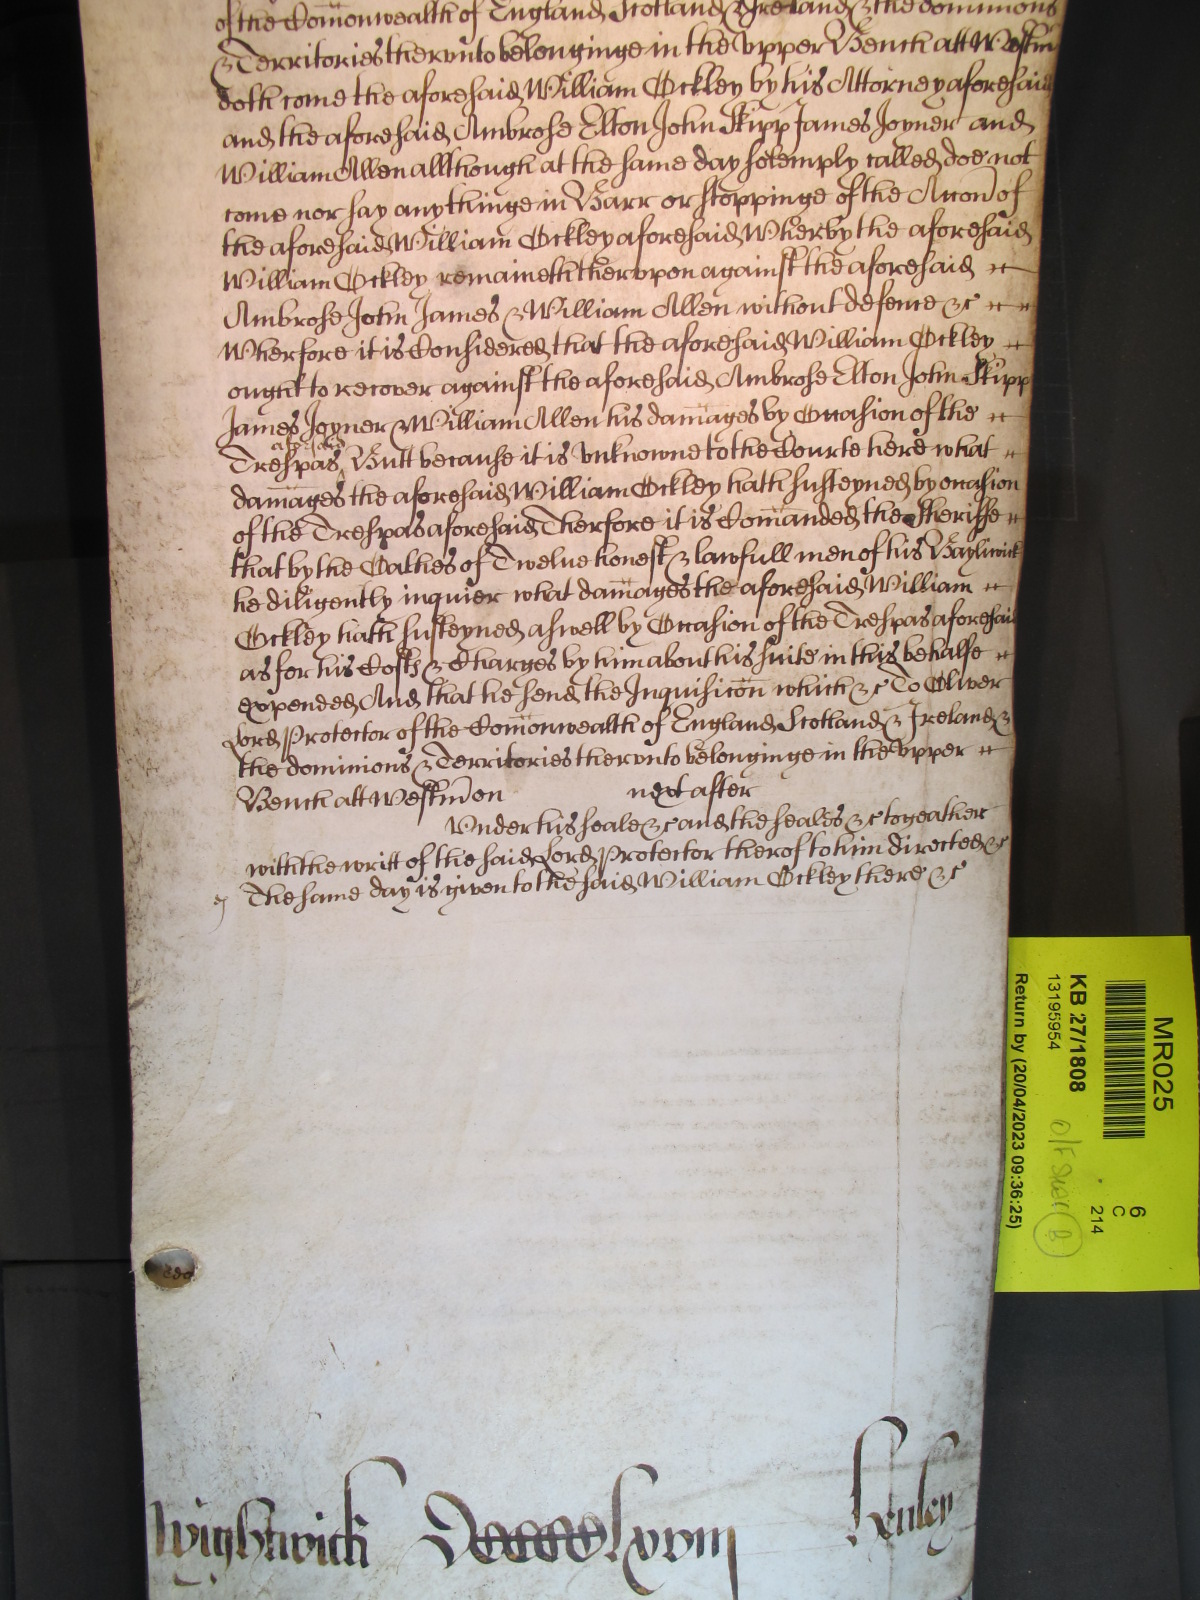 of the Comonwealth of England Scotland & Ireland & the dominions
& Territories therunto belonginge in the vpper Bench att Westm
doth come the aforesaid William Ockley by his Attorney aforesaid
and the aforesaid Ambrose Elton John Skipp James Joyner and
William Allen allthough at the same day solemply called doe not
come nor say anythinge in Barr or stoppinge of the Accon of
the aforesaid William Ockley aforesaid Wherby the aforesaid
William Ockley remaineth therupon against the aforesaid
Ambrose John James & William Allen without defence &c
Wherfore it is Considered that the aforesaid William Ockley
ought to recover against the aforesaid Ambrose Elton John Skipp
James Joyner & William Allen his damages by Occasion of the
aforesaid
Trespas Butt because it is vnknowne to the Courte here what
damages the aforesaid William Ockley hath susteyned by occasion
of the Trespas aforesaid Therfore it is Comanded the Sheriffe
that by the Oathes of Twelue honest & lawfull men of his Bayliwick
he diligently inquier what damages the aforesaid William
Ockley hath susteyned aswell by Occasion of the Trespas aforesaid
as for his Costs & Charges by him about his suite in this behalfe
expended And that he send the Inquisicon which &c To Oliver
Lord Protector of the Comonwealth of England Scotland & Ireland &
the dominions & Territories therunto belonginge in the vpper
Bench att Westm on next after
Vnder his seale &c and the seales &c togeather
with the writt of the said Lord Protector therof to him directed &c
The same day is given to the said William Ockley there &c
Wightwick Dcccclxviii Henley
MR025
KB 27/1808
13195954
Return by (20/04/2023 09:36:25)
6
C
214
B